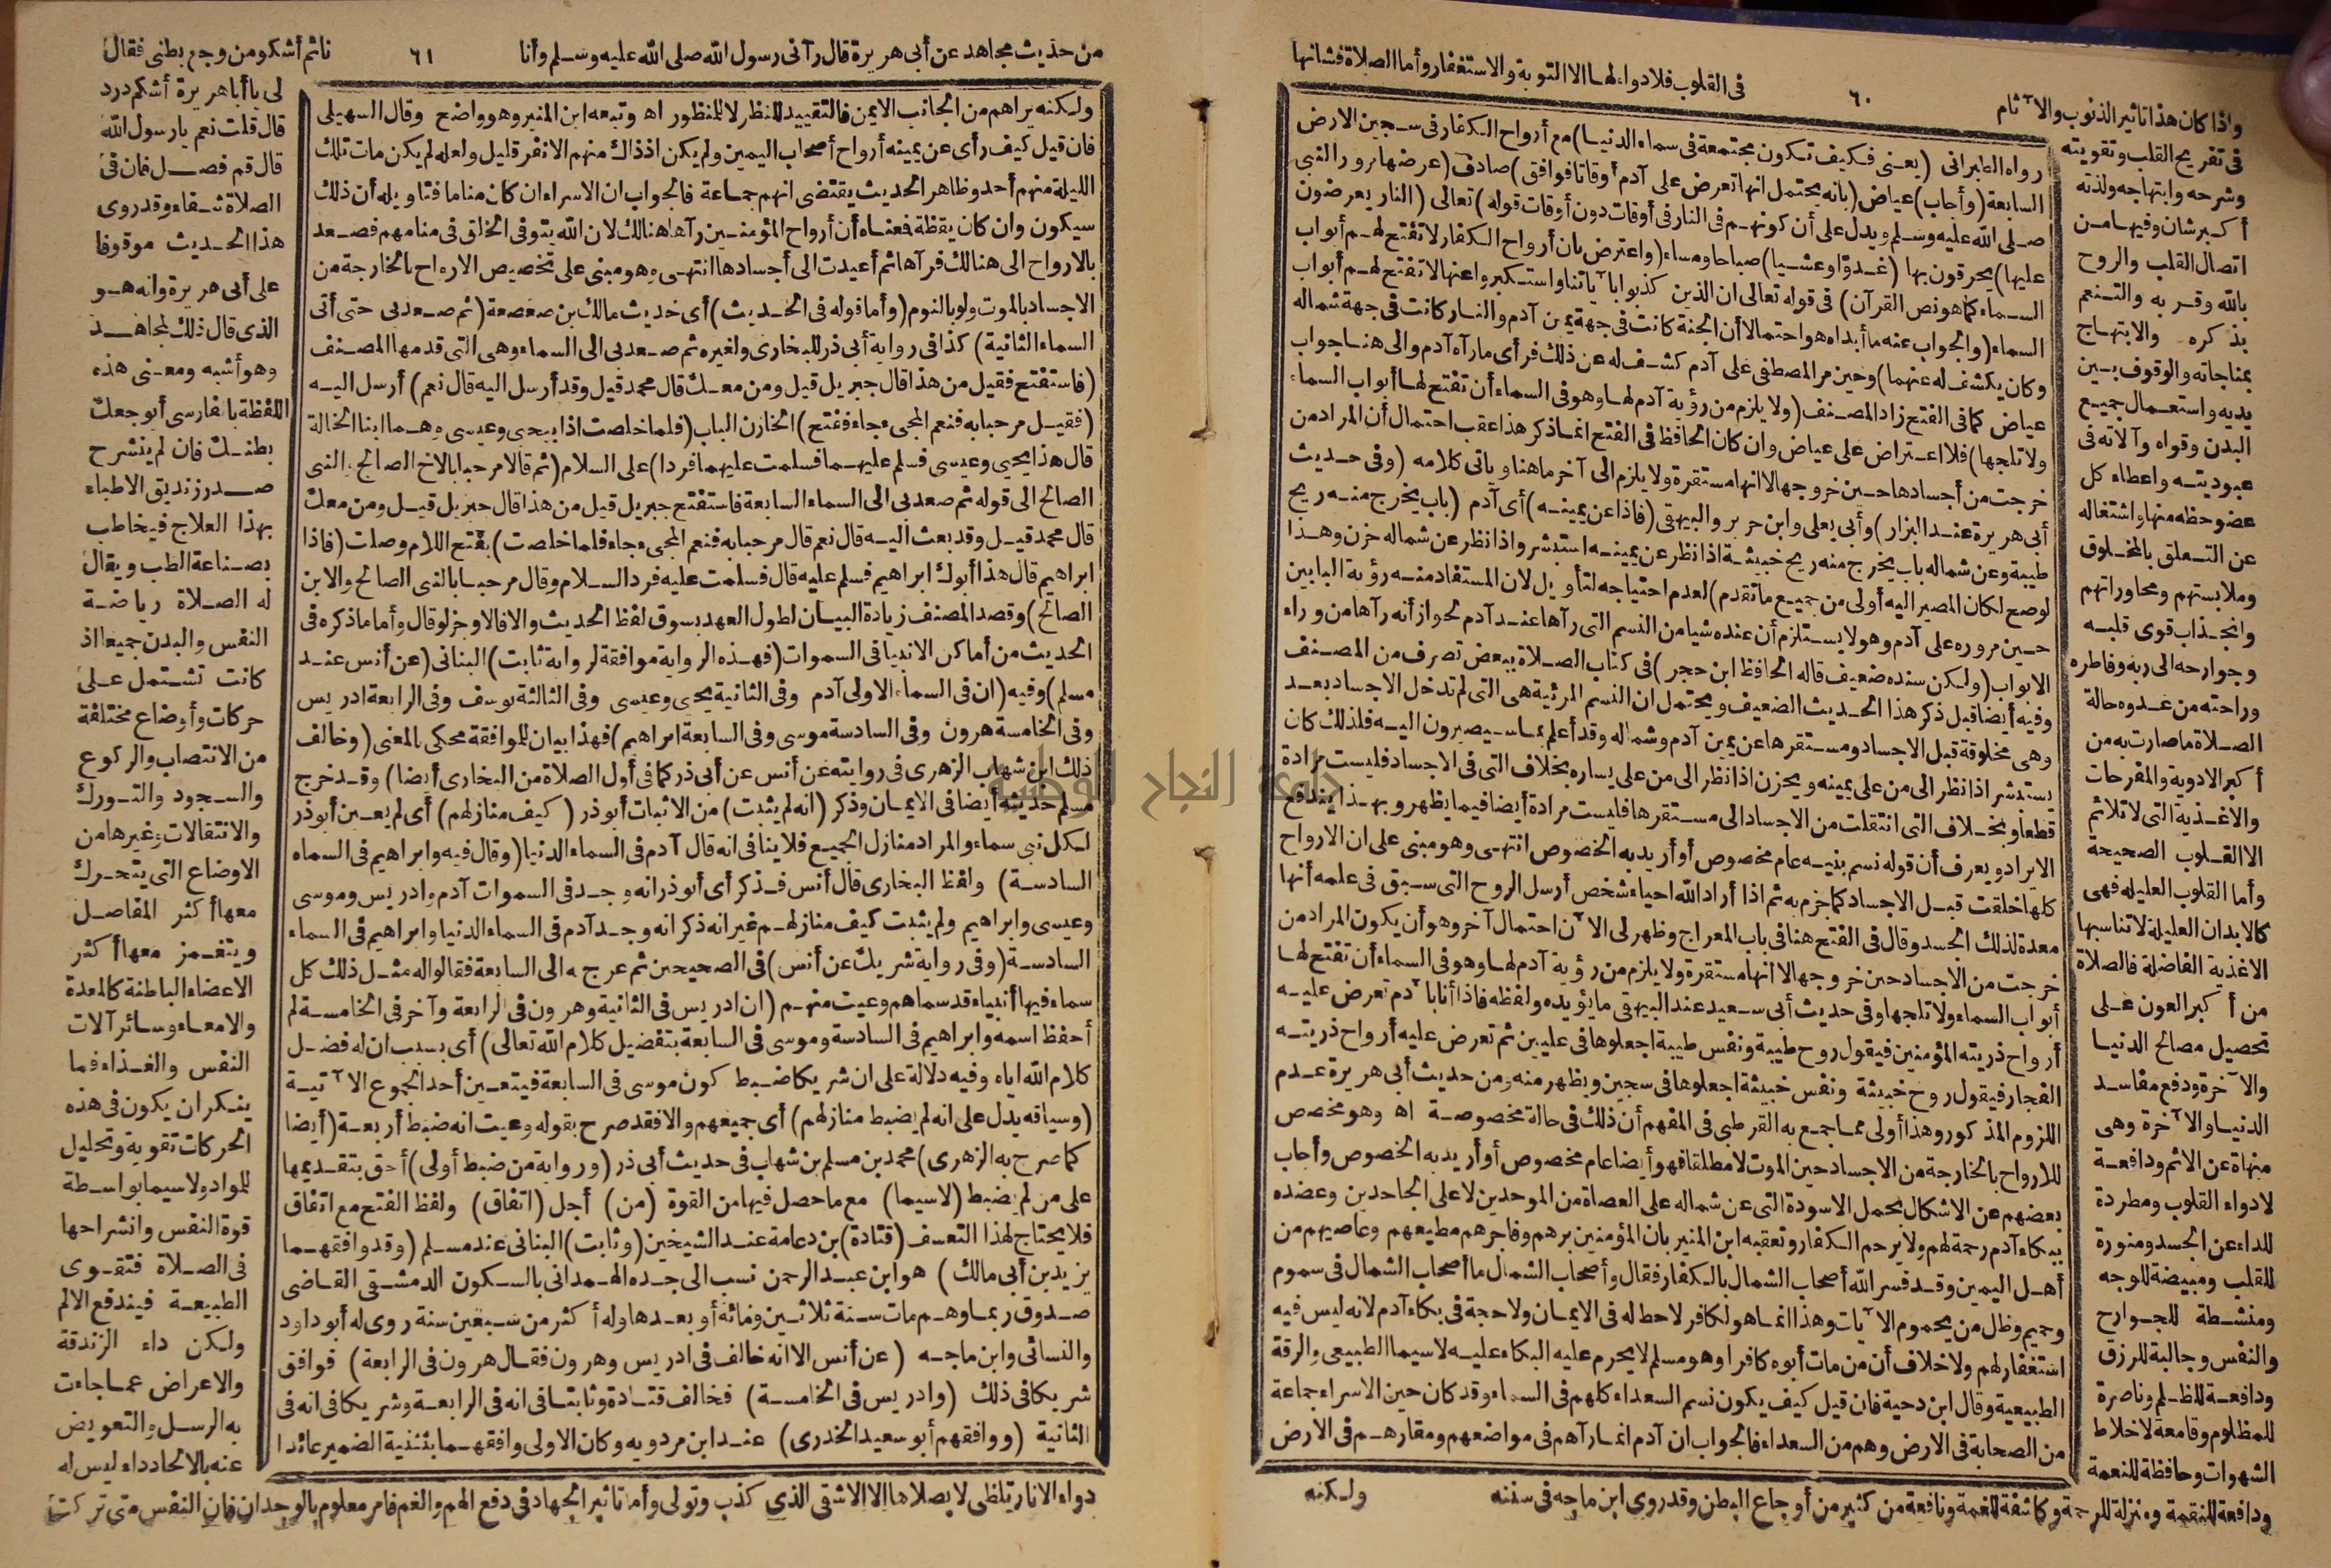 فى القلوب فلا دواء لها الا التوبة والاستغفار وأما الصلاة فشانها
٦٠
واذا كان هذا تاثير الذنوب والآثام
فى تفريح القلب وتقويته
وشرحه وابتهاجه ولذته
أكبر شان وفيها من
اتصال القلب والروح
بالله وقربه والتنعم
بذكره والابتهاج
بمناجاته والوقوف بين
يديه واستعمال جميع
البدن وقواه وآلاته فى
عبوديته واعطاء كل
عضو حظه منها واشتغاله
عن التعلق بالمخلوق
وملابستهم ومحاوراتهم
وانجذاب قوى قلبه
وجوارحه الى ربه وفاطره
وراحته من عدوه حالة
الصلاة ما صارت به من
أكبر الادوية والمفرحات
والاغذية التى لا تلائم
الا القلوب الصحيحة
وأما القلوب العليلة فهى
كالابدان العليلة لا تناسبها
الاغذية الفاضلة فالصلاة
من أكبر العون على
تحصيل مصالح الدنيا
والآخرة ودفع مفاسد
الدنيا والآخرة وهى
منهاة عن الاثم ودافعة
لادواء القلوب ومطردة
للداء عن الجسد ومنورة
للقلب ومبيضة للوجه
ومنشطة للجوارح
والنفس وجالبة للرزق
ودافعة للظلم وناصرة
للمظلوم وقامعة لاخلاط
الشهوات وحافظة للنعمة
ودافعة للنقمة ومنزلة للرحمة وكاشفة للغمة ونافعة من كثير من أوجاع البطن وقد روى ابن ماجه فى سننه
رواه الطبرانى (يعنى فكيف تكون مجتمعة فى سماء الدنيا) مع أرواح الكفار فى سجين الارض
السابعة (وأجاب) عياض (بانه يحتمل انها تعرض على آدم أوقاتا فوافق) صادف (عرضها مرور النبى
صلى الله عليه وسلم ويدل على أن كونهم فى النار فى أوقات دون أوقات قوله) تعالى (النار يعرضون
عليها) يحرقون بها (غدوّا وعشيا) صباحا ومساء (واعترض بان أرواح الكفار لا تفتح لهم أبواب
السماء كما هو نص القرآن) فى قوله تعالى ان الذين كذبوا باآياتنا واستكبروا عنها لا تفتح لهم أبواب
السماء (والجواب عنه ما أبداه هو احتمالا أن الجنة كانت فى جهة يمين آدم والنار كانت فى جهة شماله
وكان يكشف له عنهما) وحين مر المصطفى على آدم كشف له عن ذلك فرأى ما رآه آدم والى هنا جواب
عياض كما فى الفتح زاد المصنف (ولا يلزم من رؤية آدم لها وهو فى السماء أن تفتح لها أبواب السماء
ولا تلجها) فلا اعتراض على عياض وان كان الحافظ فى الفتح انما ذكر هذا عقب احتمال أن المراد من
خرجت من أجسادها حين خروجها لا انها مستقرة ولا يلزم الى آخر ما هنا ويأتى كلامه (وفى حديث
أبى هريرة عند البزار) وأبى يعلى وابن جرير والبيهقى (فاذا عن يمينه) أى آدم (باب يخرج منه ريح
طيبة وعن شماله باب يخرج منه ريح خبيثة اذا نظر عن يمينه استبشر واذا نظر عن شماله حزن وهذا
لو صح لكان المصير اليه أولى من جميع ما تقدم) لعدم احتياجه لتأويل لان المستفاد منه رؤية البابين
حين مروره على آدم وهو لا يستلزم أن عنده شيا من النسم التى رآها عند آدم لجواز أنه رآها من وراء
الابواب (ولكن سنده ضعيف قاله الحافظ ابن حجر) فى كتاب الصلاة ببعض تصرف من المصنف
وفيه أيضا قبل ذكر هذا الحديث الضعيف ويحتمل ان النسم المرئية هى التى لم تدخل الاجساد بعد
وهى مخلوقة قبل الاجساد ومستقرها عن يمين آدم وشماله وقد أعلم بما سيصيرون اليه فلذلك كان
يستبشر اذا نظر الى من على يمينه ويحزن اذا نظر الى من على يساره بخلاف التى فى الاجساد فليست مرادة
قطعا وبخلاف التى انتقلت من الاجساد الى مستقرها فليست مرادة أيضا فيما يظهر وبهذا يندفع
الايراد ويعرف أن قوله نسم بنيه عام مخصوص أو أريد به الخصوص انتهى وهو مبنى على ان الارواح
كلها خلقت قبل الاجساد كما جزم به ثم اذا أراد الله احياء شخص أرسل الروح التى سبق فى علمه أنها
معدة لذلك الجسد وقال فى الفتح هنا فى باب المعراج وظهر لى الآن احتمال آخر وهو أن يكون المراد من
خرجت من الاجساد حين خروجها لا انها مستقرة ولا يلزم من رؤية آدم لها وهو فى السماء أن تفتح لها
أبواب السماء ولا تلجها وفى حديث أبى سعيد عند البيهقى ما يؤيده ولفظه فاذا أنا باآدم تعرض عليه
أرواح ذريته المؤمنين فيقول روح طيبة ونفس طيبة اجعلوها فى عليين ثم تعرض عليه أرواح ذريته
الفجار فيقول روح خبيثة ونفس خبيثة اجعلوها فى سجين ويظهر منه ومن حديث أبى هريرة عدم
اللزوم المذكور وهذا أولى مما جمع به القرطبى فى المفهم أن ذلك فى حالة مخصوصة اه وهو مخصص
للارواح بالخارجة من الاجساد حين الموت لا مطلقا فهو أيضا عام مخصوص أو أريد به الخصوص وأجاب
بعضهم عن الاشكال بحمل الاسودة التى عن شماله على العصاة من الموحدين لا على الجاحدين وعضده
ببكاء آدم رحمة لهم ولا يرحم الكفار وتعقبه ابن المنير بان المؤمنين برهم وفاجرهم مطيعهم وعاصيهم من
أهل اليمين وقد فسر الله أصحاب الشمال بالكفار فقال وأصحاب الشمال ما أصحاب الشمال فى سموم
وحميم وظل من يحموم الآيات وهذا انما هو لكافر لا حظ له فى الايمان ولا حجة فى بكاء آدم لانه ليس فيه
استغفار لهم ولا خلاف أن من مات أبوه كافرا وهو مسلم لا يحرم عليه البكاء عليه لا سيما الطبيعى والرقة
الطبيعية وقال ابن دحية فان قيل كيف يكون نسم السعداء كلهم فى السماء وقد كان حين الاسراء جماعة
من الصحابة فى الارض وهم من السعداء فالجواب ان آدم انما رآهم فى مواضعهم ومقارهم فى الارض
ولكنه
من حديث مجاهد عن أبى هريرة قال رآنى رسول الله صلى الله عليه وسلم وأنا
٦١
نائم أشكو من وجع بطنى فقال
لى يا أبا هريرة أشكم درد
قال قلت نعم يا رسول الله
قال قم فصل فان فى
الصلاة شفاء وقد روى
هذا الحديث موقوفا
على أبى هريرة وانه هو
الذى قال ذلك لمجاهد
وهو أشبه ومعنى هذه
اللفظة بالفارسى أيوجعك
بطنك فان لم ينشرح
صدر زنديق الاطباء
بهذا العلاج فيخاطب
بصناعة الطب ويقال
له الصلاة رياضة
النفس والبدن جميعا اذ
كانت تشتمل على
حركات وأوضاع مختلفة
من الانتصاب والركوع
والسجود والتورك
والانتقالات وغيرها من
الاوضاع التى يتحرك
معها أكثر المفاصل
وينغمز معها أكثر
الاعضاء الباطنة كالمعدة
والامعاء وسائر آلات
النفس والغذاء فما
ينكر ان يكون فى هذه
الحركات تقوية وتحليل
للمواد ولا سيما بواسطة
قوة النفس وانشراحها
فى الصلاة فتقوى
الطبيعة فيندفع الالم
ولكن داء الزندقة
والاعراض عما جاءت
به الرسل والتعويض
عنه بالالحاد داء ليس له
دواء الا نار تلظى لا يصلاها الا الاشقى الذى كذب وتولى وأما تاثير الجهاد فى دفع الهم والغم فامر معلوم بالوجدان فان النفس متى تركت
ولكنه يراهم من الجانب الايمن فالتقييد للنظر لا للمنظور اه وتبعه ابن المنير وهو واضح وقال السهيلى
فان قيل كيف رأى عن يمينه أرواح أصحاب اليمين ولم يكن اذذاك منهم الا نفر قليل ولعله لم يكن مات تلك
الليلة منهم أحد وظاهر الحديث يقتضى انهم جماعة فالجواب ان الاسراء ان كان مناما فتاويله أن ذلك
سيكون وان كان يقظة فمعناه أن أرواح المؤمنين رآها هنالك لان الله يتوفى الخلق فى منامهم فصعد
بالارواح الى هنالك فرآها ثم أعيدت الى أجسادها انتهى وهو مبنى على تخصيص الارواح بالخارجة من
الاجساد بالموت ولو بالنوم (وأما قوله فى الحديث) أى حديث مالك بن صعصعة (ثم صعد بى حتى أتى
السماء الثانية) كذا فى رواية أبى ذر للبخارى ولغيره ثم صعد بى الى السماء وهى التى قدمها المصنف
(فاستفتح فقيل من هذا قال جبريل قيل ومن معك قال محمد قيل وقد أرسل اليه قال نعم) أرسل اليه
(فقيل مرحبا به فنعم المجىء جاء ففتح) الخازن الباب (فلما خلصت اذا بيحيى وعيسى وهما ابنا الخالة
قال هذا يحيى وعيسى فسلم عليهما فسلمت عليهما فردا) على السلام (ثم قالا مرحبا بالاخ الصالح والنبى
الصالح الى قوله ثم صعد بى الى السماء السابعة فاستفتح جبريل قيل من هذا قال جبريل قيل ومن معك
قال محمد قيل وقد بعث اليه قال نعم قال مرحبا به فنعم المجىء جاء فلما خلصت) بفتح اللام وصلت (فاذا
ابراهيم قال هذا أبوك ابراهيم فسلم عليه قال فسلمت عليه فرد السلام وقال مرحبا بالنبى الصالح والابن
الصالح) وقصد المصنف زيادة البيان لطول العهد بسوق لفظ الحديث والا فالاوجز لو قال وأما ما ذكره فى
الحديث من أماكن الانبياء فى السموات (فهذه الرواية موافقة لرواية ثابت) البنانى (عن أنس عند
مسلم) وفيه (ان فى السماء الاولى آدم وفى الثانية يحيى وعيسى وفى الثالثة يوسف وفى الرابعة ادريس
وفى الخامسة هرون وفى السادسة موسى وفى السابعة ابراهيم) فهذا بيان للموافقة محكى بالمعنى (وخالف
ذلك ابن شهاب الزهرى فى روايته عن أنس عن أبى ذر كما فى أول الصلاة من البخارى أيضا) وقد خرج
مسلم حديثه أيضا فى الايمان وذكر (انه لم يثبت) من الاثبات أبو ذر (كيف منازلهم) أى لم يعين أبو ذر
لكل نبى سماء والمراد منازل الجميع فلا ينافى انه قال آدم فى السماء الدنيا (وقال فيه وابراهيم فى السماء
السادسة) ولفظ البخارى قال أنس فذكر أى أبو ذر انه وجد فى السموات آدم وادريس وموسى
وعيسى وابراهيم ولم يثبت كيف منازلهم غير انه ذكر انه وجد آدم فى السماء الدنيا وابراهيم فى السماء
السادسة (وفى رواية شريك عن أنس) فى الصحيحين ثم عرج به الى السابعة فقالوا له مثل ذلك كل
سماء فيها أنبياء قد سماهم وعيت منهم (ان ادريس فى الثانية وهرون فى الرابعة وآخر فى الخامسة لم
أحفظ اسمه وابراهيم فى السادسة وموسى فى السابعة بتفضيل كلام الله تعالى) أى بسبب ان له فضل
كلام الله اياه وفيه دلالة على ان شريكا ضبط كون موسى فى السابعة فيتعين أحد الجموع الآتية
(وسياقه يدل على انه لم يضبط منازلهم) أى جميعهم والا فقد صرح بقوله وعيت انه ضبط أربعة (أيضا
كما صرح به الزهرى) محمد بن مسلم بن شهاب فى حديث أبى ذر (ورواية من ضبط أولى) أحق بتقديمها
على من لم يضبط (لا سيما) مع ما حصل فيها من القوة (من) أجل (اتفاق) ولفظ الفتح مع اتفاق
فلا يحتاج لهذا التعسف (قتادة) بن دعامة عند الشيخين (وثابت) البنانى عند مسلم (وقد وافقهما
يزيد بن أبى مالك) هو ابن عبد الرحمن نسب الى جده الهمدانى بالسكون الدمشقى القاضى
صدوق ربما وهم مات سنة ثلاثين ومائة أو بعدها وله أكثر من سبعين سنة روى له أبو داود
والنسائى وابن ماجه (عن أنس الا انه خالف فى ادريس وهرون فقال هرون فى الرابعة) فوافق
شريكا فى ذلك (وادريس فى الخامسة) فخالف قتادة وثابتا فى انه فى الرابعة وشريكا فى انه فى
الثانية (ووافقهم أبو سعيد الخدرى) عند ابن مردويه وكان الاولى وافقهما بتثنية الضمير عائدا